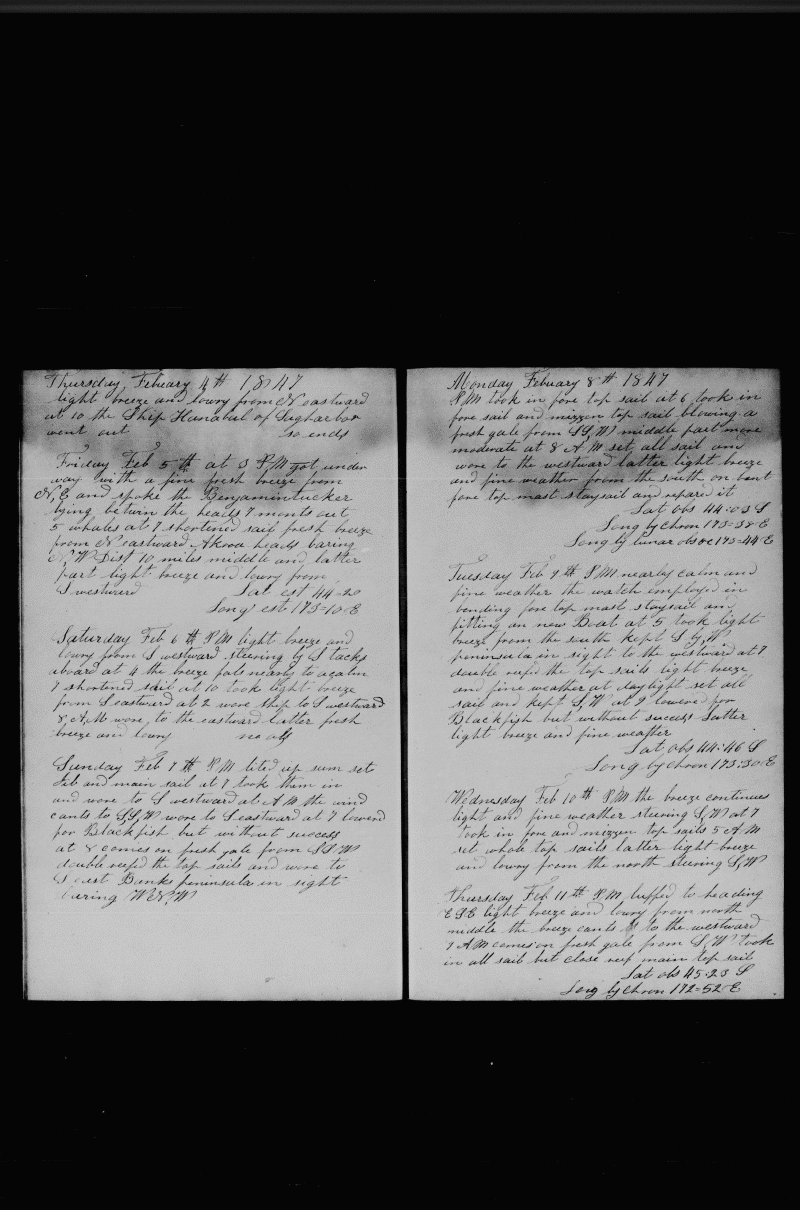 Thursday, Febuary 4th 1847
light breeze and lowry from N eastward
at 10 the Ship Hanabul of Sugharbor
went out so ends
Friday Feb 5th at 3 P,M got under
way with a fine fresh breeze from
N,E and spoke the Benjamintucker
lying between the heads 7 monts out
5 whales at 7 shortened sail fresh breeze
from N eastward Akora heads baring
N,W Dist 10 miles middle and latter
part light breeze and lowry from
S westward Lat est 44-20
Long est 173-10 E
Saturday Feb 6th P,M light breeze and
lowry from S westward steering by S tacks
aboard at 4 the breeze fals nearly to acalm
7 shortened sail at 10 took light breeze
from S eastward at 2 wore ship to S westward
8, A,M wore, to the eastward latter fresh
breeze and lowry no obs
Sunday Feb 7th P,M lited up sum set
Jib and main sail at 7 took them in
and wore to S westward at A M the wind
cants to S,S,W wore to S eastward at 7 lowerd
for Blackfish but without success
at 8 comes on fresh gale from S S W
double reefd the top sails and wore to
S east Banks peninsula in sight
baring W,N,W
Monday Febuary 8th 1847
P,M took in fore top sail at 6 took in
fore sail and mizzen top sail blowing a
fresh gale from S,S,W middle part more
moderate at 8 A M set all sail and
wore to the westward latter light breeze
and fine weather from the south on bent
fore top mast staysail and repared it
Lat obs 44-03 S
Long by chron 173-38 E
Long by lunar obs oc 173-44 E
Tuesday Feb 9th P,M nearly calm and
fine weather the watch employed in
bending fore top mast staysail and
fitting an new Boat at 5 took light
breeze from the south kept S,y,W
peninsula in sight to the westward at 7
double reefd the top sails light breeze
and fine weather at daylight set all
sail and kept S,W at 9 lowered for
Blackfish but without success Latter
light breeze and fine weather
Lat obs 44-46 S
Long by chron 173-30 E
Wednesday Feb 10th P,M the breeze continues
light and fine weather steering S,W at 7
took in fore and mizzen top sails 5 A M
set whole top sails latter light breeze
and lowry from the north steering S,W
Thursday Feb 11th P,M luffed to heading
E S E light breeze and lowry from north
middle the breeze cants to the westward
7 A M comes on fresh gale from S,W took
in all sail but close reef main top sail
Lat obs 45-23 S
Long by chron 172-52 E